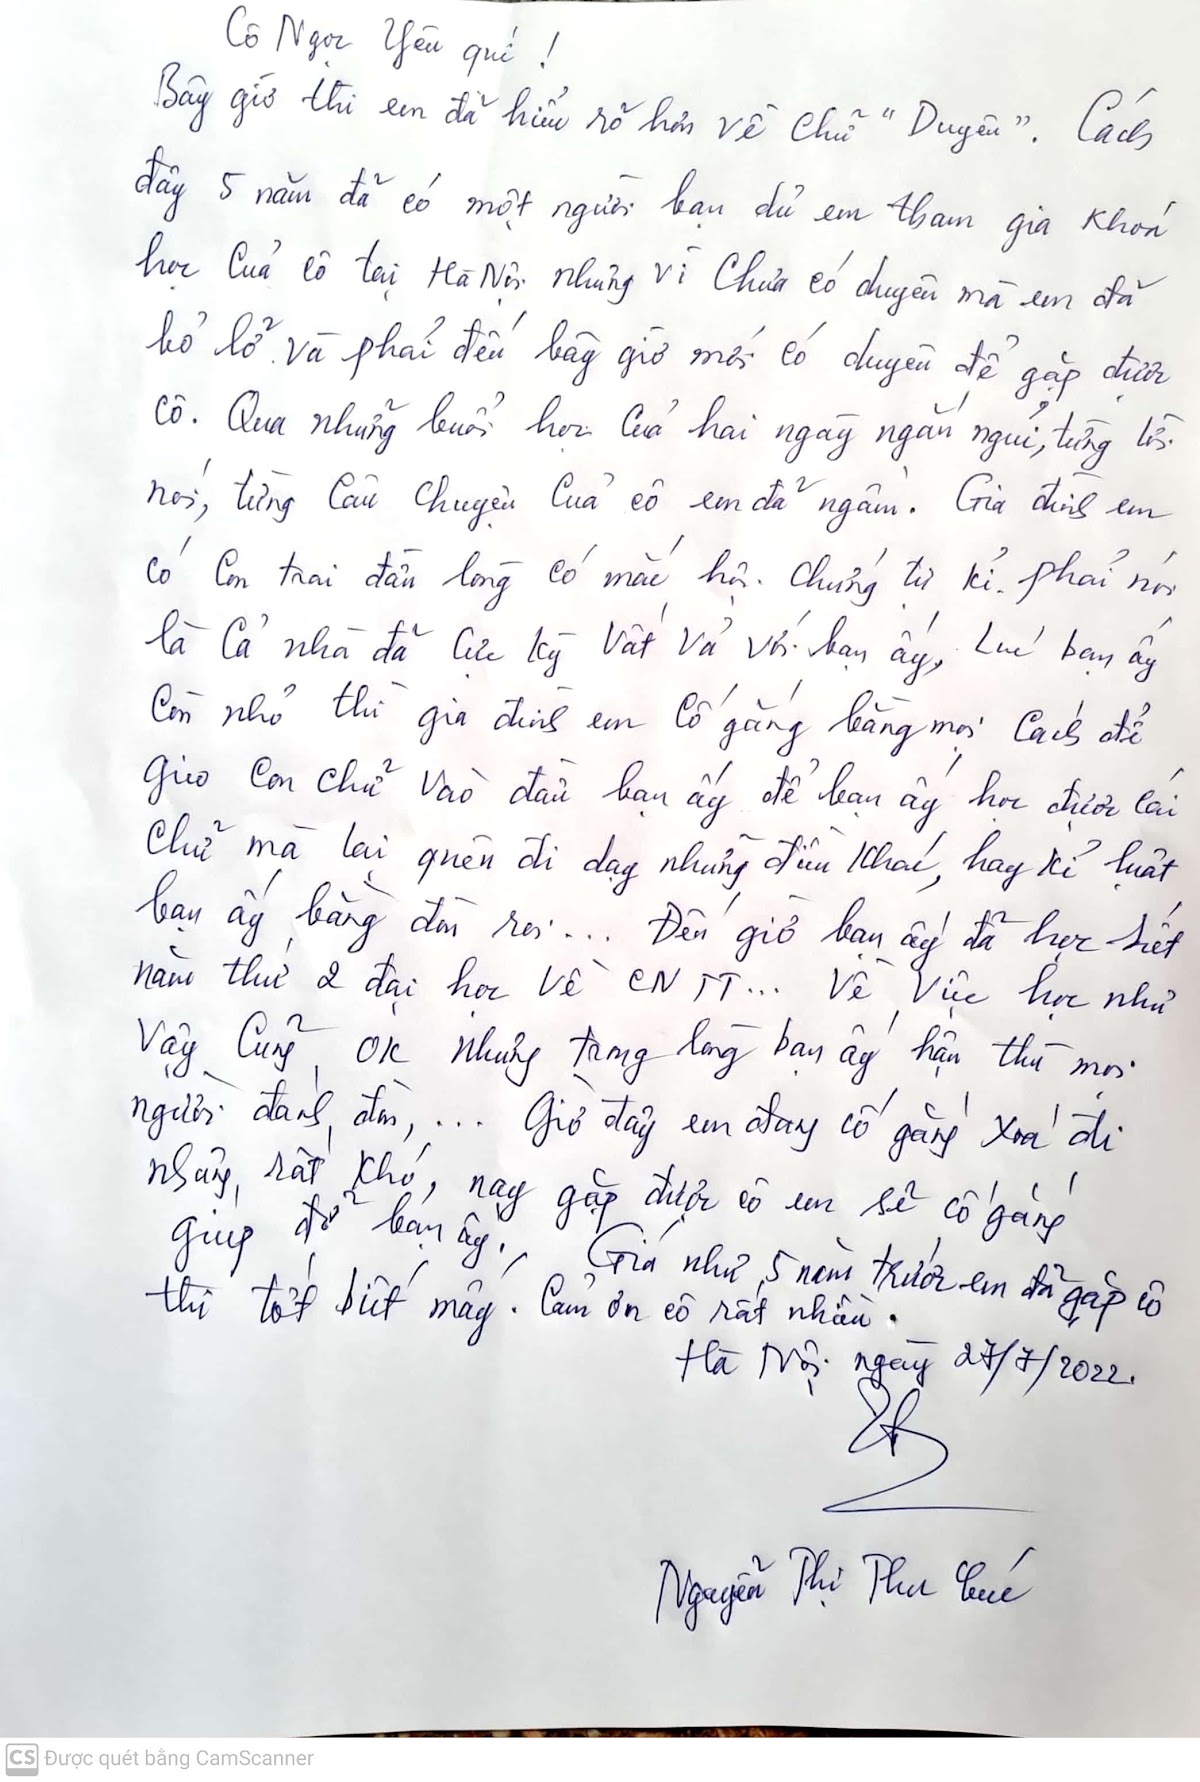 Cô Ngọc yêu quí !
Bây giờ thì em đã hiểu rõ hơn về chữ "Duyên". Cách
đây 5 năm đã có một người bạn dủ em tham gia khoá
học của cô tại Hà Nội nhưng vì chưa có duyên mà em đã
bỏ lỡ và phải đến bây giờ mới có duyên để gặp được
cô. Qua những buổi học của hai ngày ngắn ngủi, từng lời
nói, từng câu chuyện của cô em đã ngấm. Gia đình em
có con trai đầu lòng có mắc hội chứng tự kỉ. phải nói
là cả nhà đã cực kỳ vất vả với bạn ấy, Lúc bạn ấy
còn nhỏ thì gia đình em cố gắng bằng mọi cách để
gieo con chữ vào đầu bạn ấy để bạn ấy học được cái
chữ mà lại quên đi dạy những điều khác, hay kỉ luật
bạn ấy bằng đòn roi... Đến giờ bạn ấy đã học hết
năm thứ 2 đại học về CNTT... Về việc học như
vậy cũng OK nhưng trong lòng bạn ấy hận thù mọi
người đánh, đòn, ... Giờ đây em đang cố gắng xoá đi
nhưng rất khó, nay gặp được cô em sẽ cố gắng
giúp đỡ bạn ấy. Giá như 5 năm trước em đã gặp cô
thì tốt biết mấy. Cảm ơn cô rất nhiều.
Hà Nội ngày 27/7/2022.
Nguyễn Thị Thu Cúc
CS Được quét bằng CamScanner